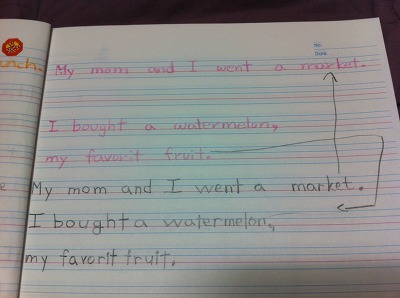 No.
Date
unch.
My mom and I went a market.
I bought a watermelon,
my favorit fruit.
e
My mom and I went a market.
I bought a watermelon,
my favorit fruit.